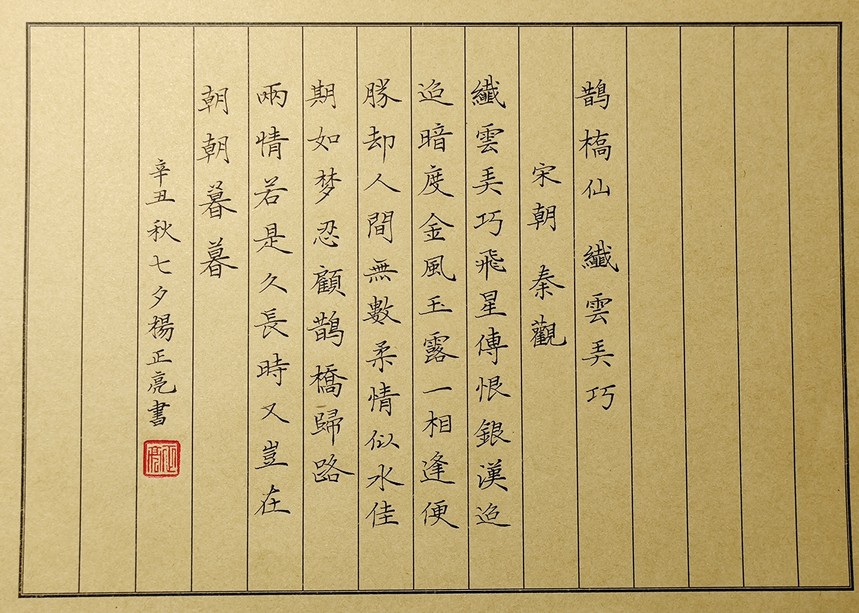 鵲槗仙 纖雲弄巧
宋朝 秦觀
纖雲弄巧飛星傳恨銀漢迢
迢暗度金風玉露一相逢便
勝却人間無數柔情似水佳
期如梦忍顧鵲橋歸路
兩情若是久長時又豈在
朝朝暮暮
辛丑秋七夕楊正亮書